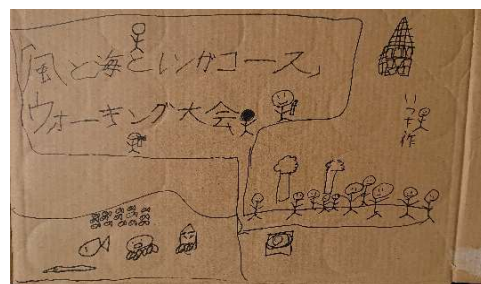 「風と海とレンガコース」
ウォーキング大会
いっせ作